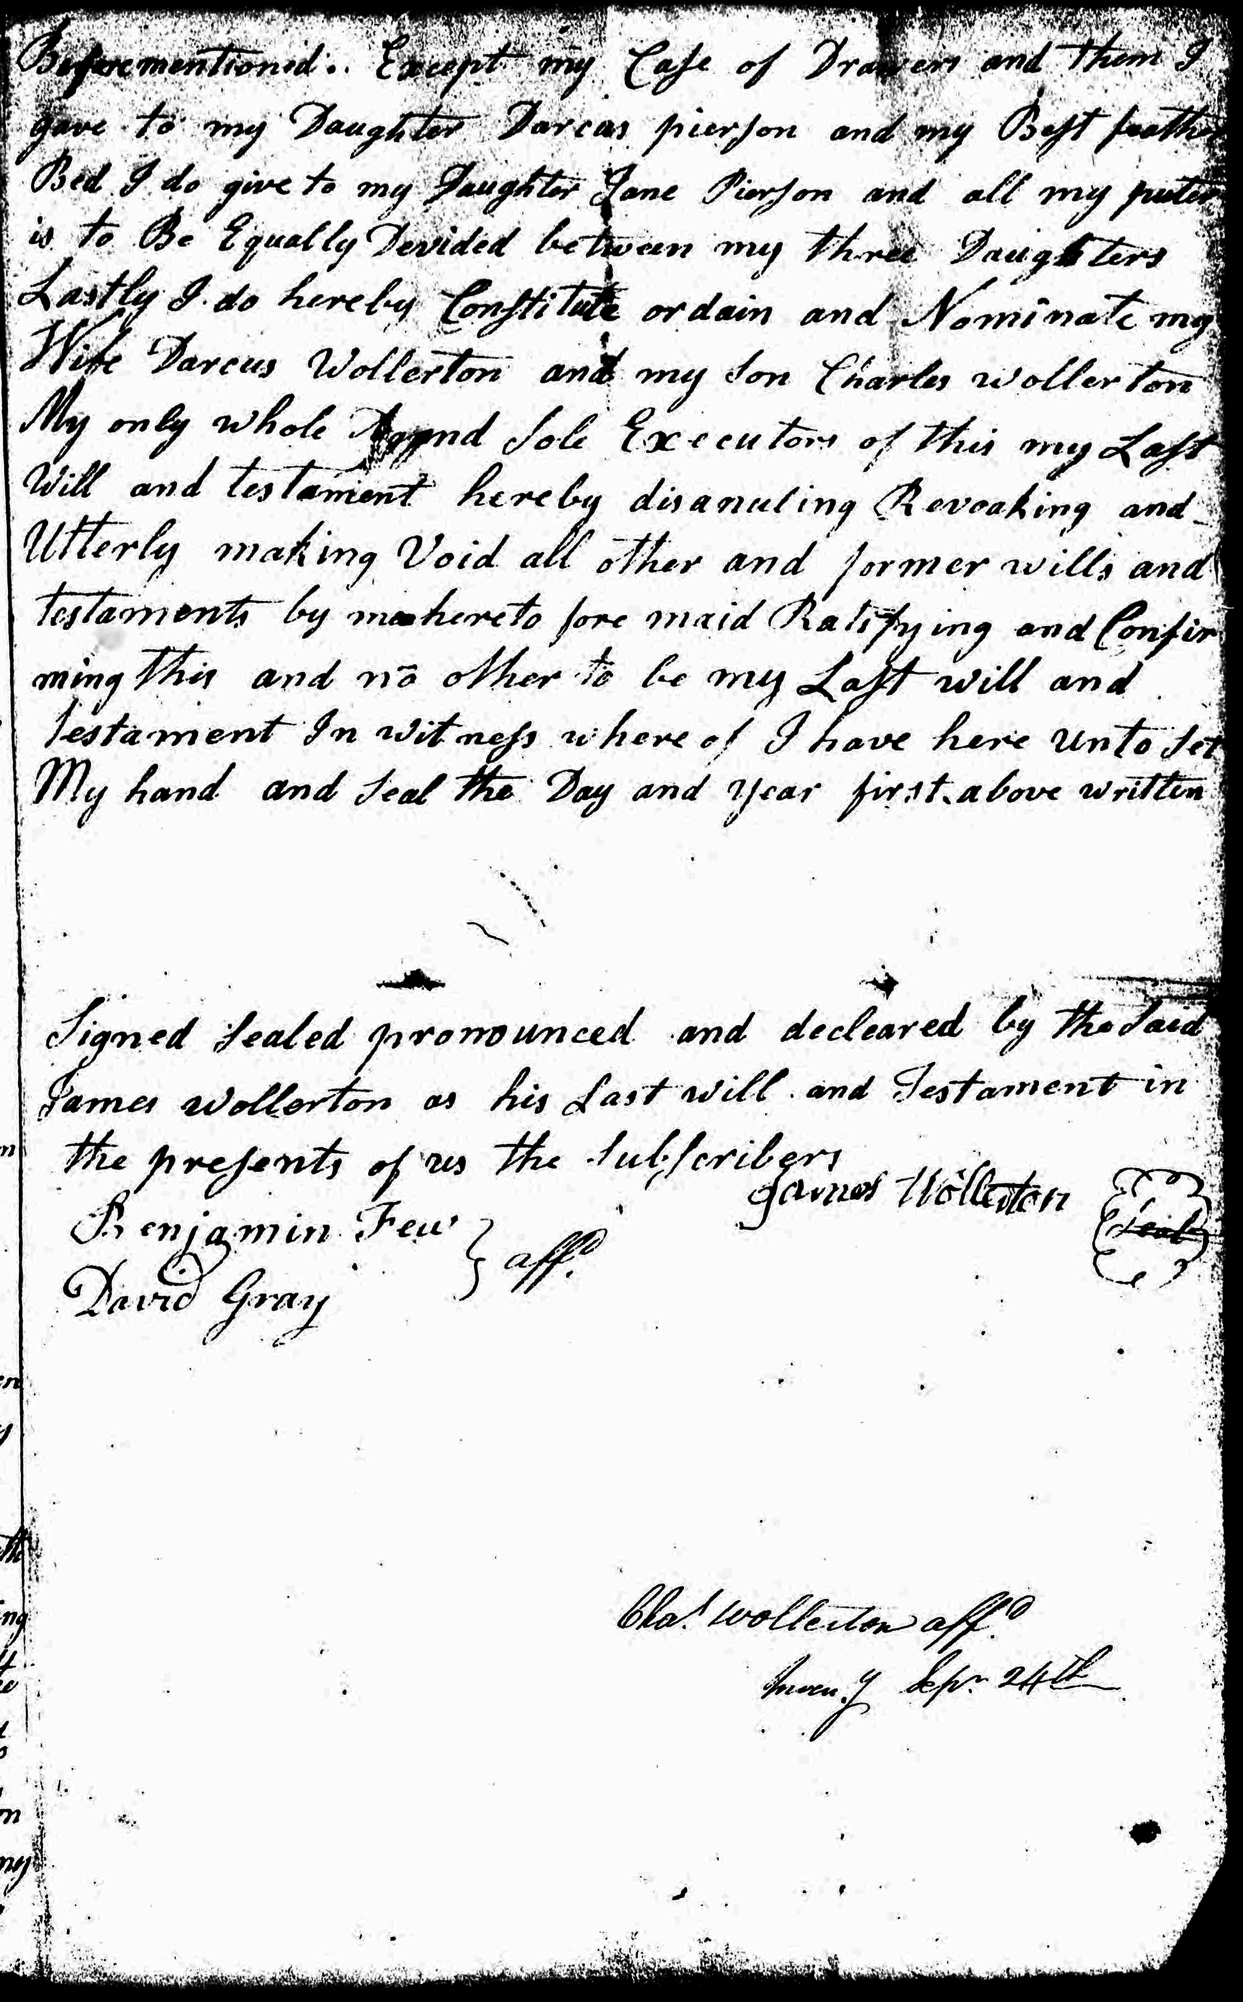 Beforementioned.. Except my Case of Drawers and them I
gave to my Daughter Darcas pierson and my Best feather
Bed I do give to my Daughter Jane Pierson and all my puter
is to Be Equally Devided between my three Daughters
Lastly I do hereby Constitute ordain and Nominate my
Wife Darcus Wollerton and my son Charles wollerton
My only whole and Sole Executors of this my Last
Will and testament hereby disanuling Revoaking and
Utterly making Void all other and former wills and
testaments by me hereto fore maid Ratifying and Confir
ming this and no other to be my Last will and
Testament In witness where of I have here unto set
My hand and seal the Day and year first above written
Signed sealed pronounced and decleared by the said
James wollerton as his Last will and Testament in
the presents of us the subscribers
James Wollerton Seal
Benjamin Few
David Gray } affd
Chas. Wollerton affd
Inven.y Sepr. 24th